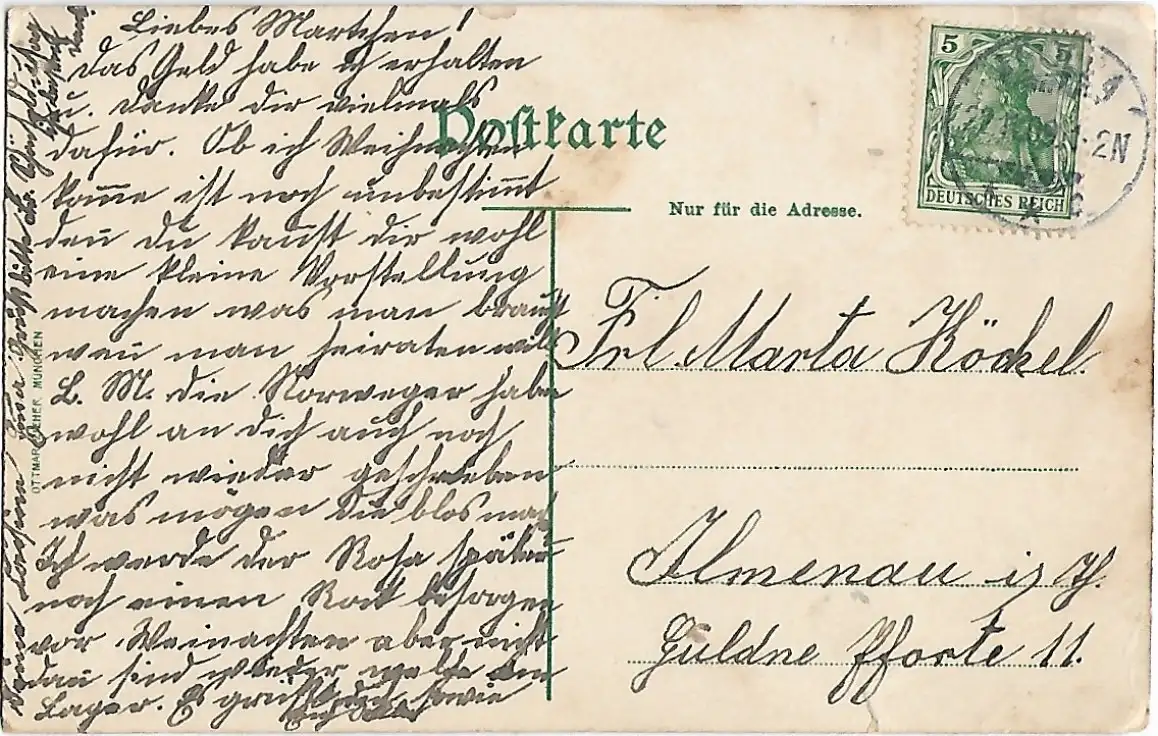 Liebes Martchen!
Das Geld habe ich erhalten
u. danke dir vielmals
dafür. Ob ich Weihnachten
kom̄e ist noch unbestim̄t
den̄ du kannst dir wohl
eine kleine Vorstellung
machen was man braucht
wen̄ man heiraten will
L. M. die Norweger haben
wohl an dich auch noch
nicht wieder geschrieben
was mögen die blos mach
Ich werde der Rosa
noch einen Rock besorgen
vor Weinachten aber nicht
dan̄ sind wieder welche am
Lager. Es grüßt dich sowie
Postkarte
Nur für die Adresse.
5
5
DEUTSCHES REICH
1-2N
Frl. Marta Höckel.
Ilmenau i/Th.
Güldne Pforte 11.
OTTMAR ZIEHER, MÜNCHEN